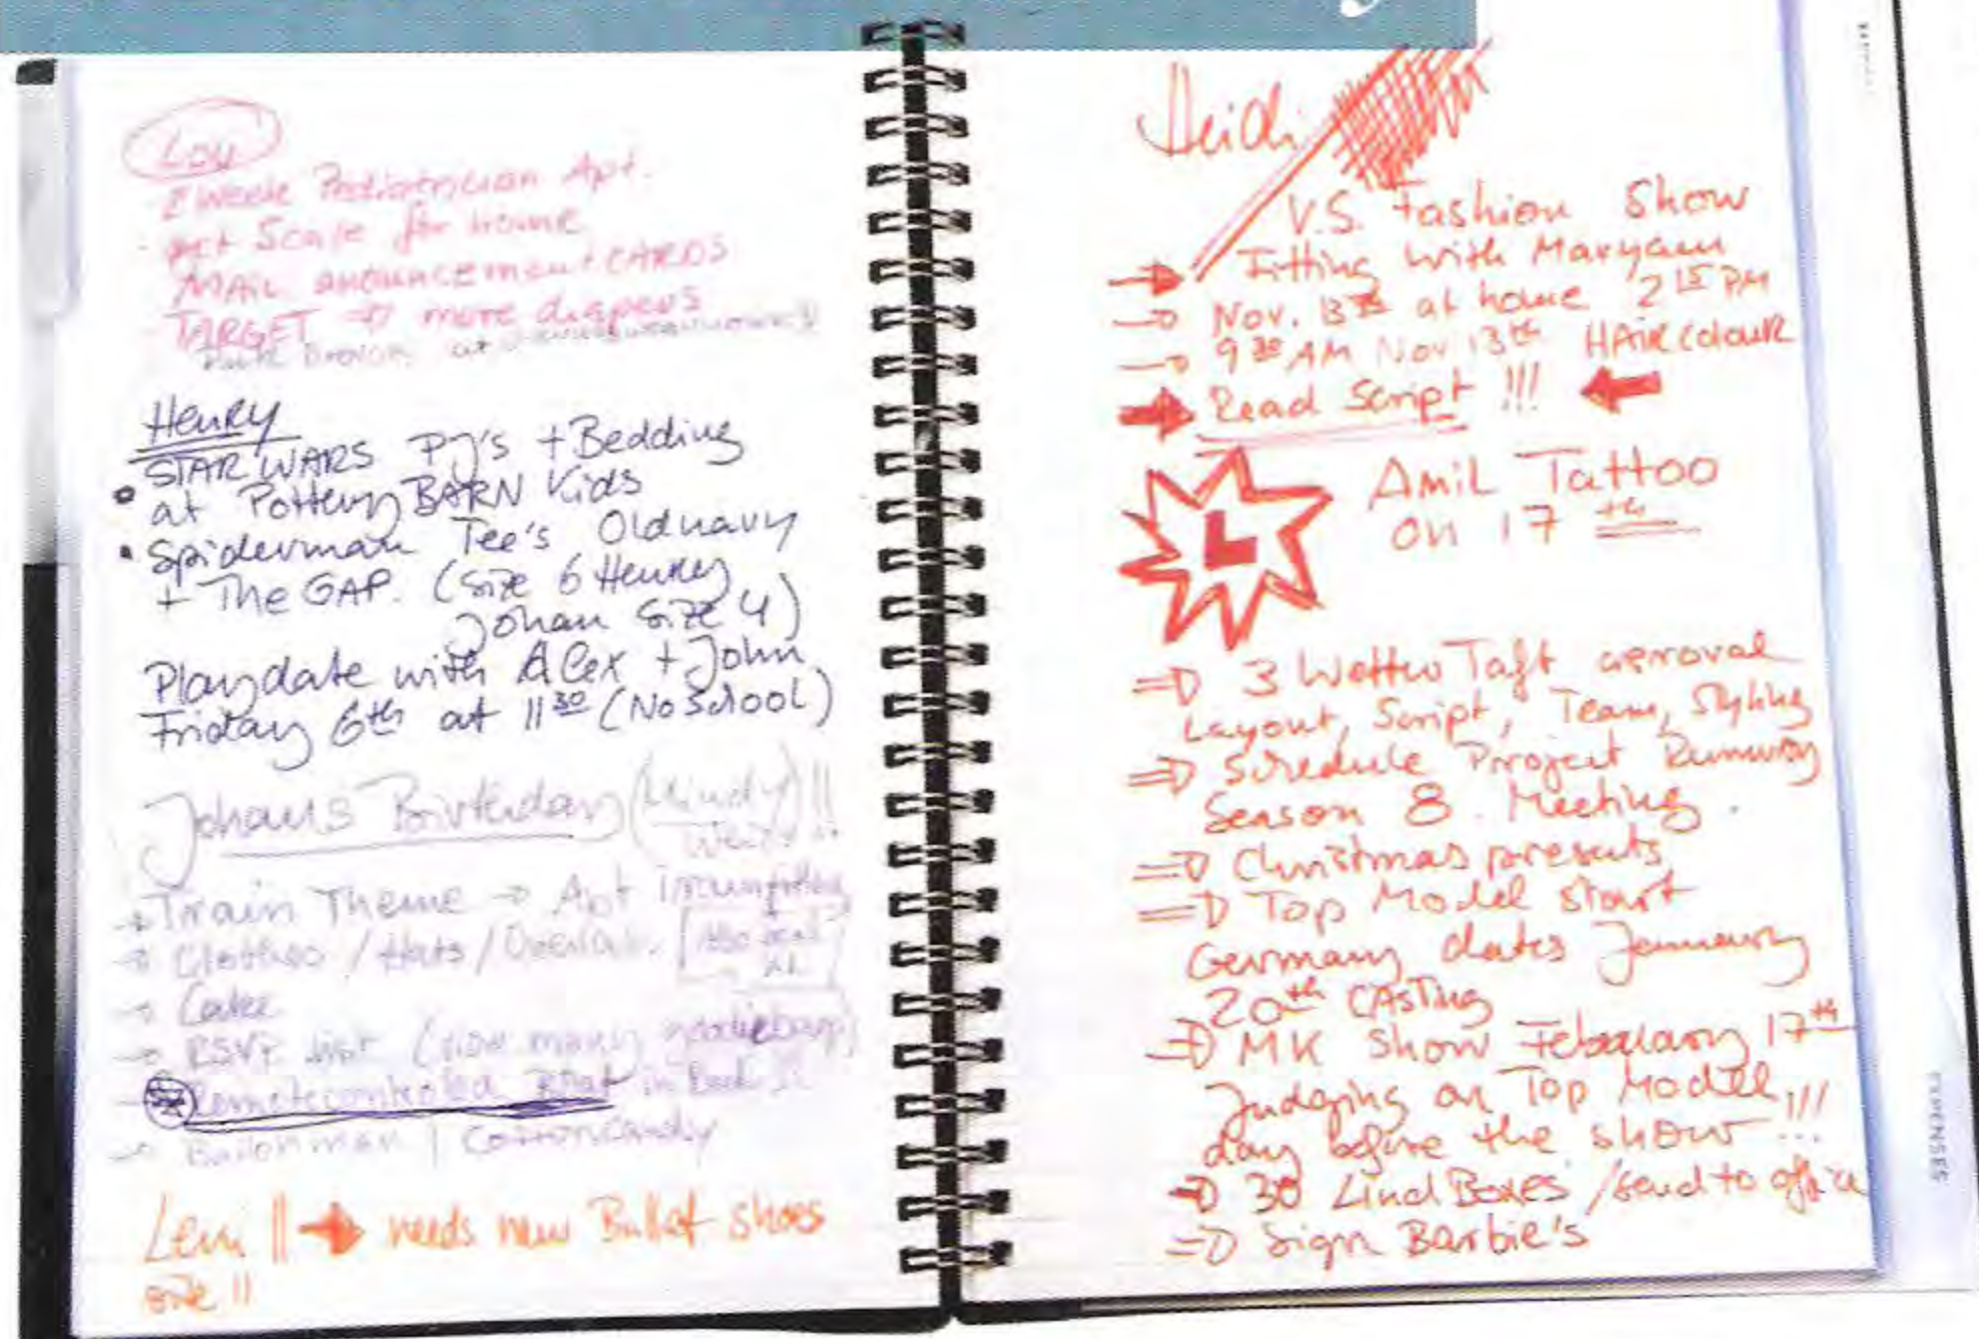 Lou
2 week Pediatrician Apt.
- get Scale for home
MAIL announcement CARDS
- TARGET => more diapers
at
Henry
STAR WARS PJ's + Bedding
at Pottery BARN Kids
• Spiderman Tee's Oldnavy
+ The GAP. (size 6 Henry
Johan size 4)
Playdate with Alex + John
Friday 6th at 11 30 (No School)
Johan's Birthday (Mindy) !!
→ Train Theme → Apt
→ Clothes / Hats /
→ Cake
→ RSVP list (how many goodiebags)
Remotecontroled Boat in
→ Ballonman | Cottoncandy
Leni || → needs new Ballet shoes
size 11
Heidi
V.S. Fashion Show
→ Fitting with Maryam
→ Nov. 13th at home 2 15 PM
→ 9 30 AM Nov 13th HAIR colouR
→ Read Script !!! ←
L
AMiL Tattoo
on 17 th
=> 3 Wetter Taft aproval
Layout, Script, Team, Styling
=> Schedule Project Runway
Season 8. Meeting.
=> Christmas presents
=> Top Model start
Germany dates January
20th CAsting
=> MK Show February 17th
Judging on Top Model
day before the show !!!
=> 30 Boxes / send to office
=> Sign Barbie's
EXPENSES